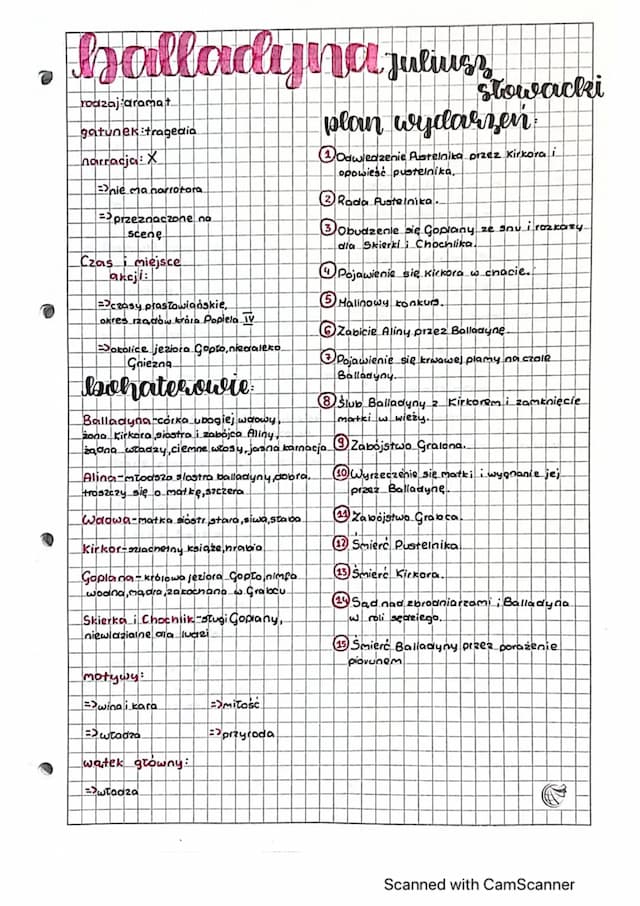 balladyna Juliusz Słowacki
rodzaj: dramat
gatunek: tragedia
narracja: X
=> nie ma narratora
=> przeznaczone na
scenę
Czas i miejsce
akcji:
=> czasy prasłowiańskie,
okres rządów króla Popiela IV
=> okolice jeziora Gopło, niedaleko
Gniezna
bohaterowie:
Balladyna - córka ubogiej wdowy,
żona Kirkora, siostra i zabójca Aliny,
żądna władzy, ciemne włosy, jasna karnacja
Alina - młodsza siostra balladyny, dobra,
troszczy się o matkę, szczera
Wdowa - matka sióstr, stara, siwa, słaba
Kirkor - szlachetny książe, hrabia
Goplana - królowa jeziora Gopło, nimfa
wodna, mądra, zakochana w Grabcu
Skierka i Chochlik - sługi Goplany,
niewidzialne dla ludzi
motywy:
=> wina i kara
=> miłość
=> władza
=> przyroda
wątek główny:
=> władza
plan wydarzeń:
1 Odwiedzenie Pustelnika przez Kirkora i
opowieść pustelnika.
2 Rada Pustelnika.
3 Obudzenie się Goplany ze snu i rozkazy
dla Skierki i Chochlika.
4 Pojawienie się Kirkora w chacie.
5 Malinowy konkurs.
6 Zabicie Aliny przez Balladynę.
7 Pojawienie się krwawej plamy na czole
Balladyny.
8 Ślub Balladyny z Kirkorem i zamknięcie
matki w wieży.
9 Zabójstwo Gralona.
10 Wyrzeczenie się matki i wygnanie jej
przez Balladynę.
11 Zabójstwo Grabca.
12 Śmierć Pustelnika
13 Śmierć Kirkora.
14 Sąd nad zbrodniarzami i Balladyna
w roli sędziego.
15 Śmierć Balladyny przez porażenie
piorunem
Scanned with CamScanner